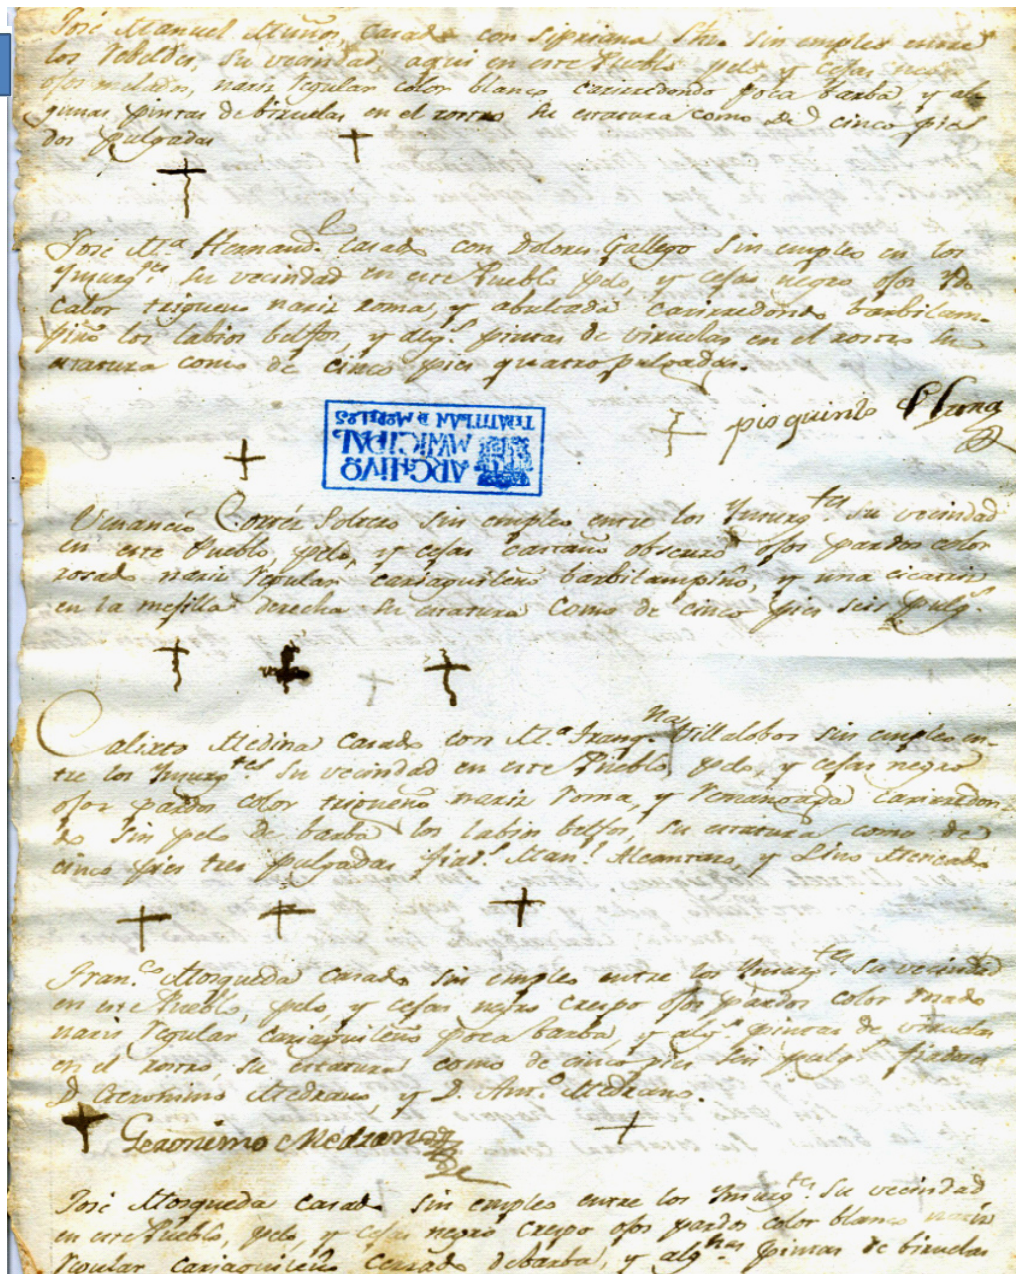 José Manuel Muños, Casado con Sipriana Sin empleo entre
los Rebeldes, Su vecindad, aqui en este Pueblo pelo y cejas
ojos melados, nariz regular color blanco carirredondo poca barba y al-
gunas pintas de biruelas en el rostro Su estatura como de cinco pies
dos pulgadas
José Mª Hernandz Casado con Dolores Gallego Sin empleo en los
Ynsurgtes Su vecindad en este Pueblo pelo, y cejas negro ojos
color trigueño nariz roma, y abultada carirredondo barbilam-
piño los labios belfos, y algs pintas de viruelas en el rostro Su
estatura como de cinco pies quatro pulgadas.
ARCHIVO
MUNICIPAL
TEPATITLAN D MORELOS
Venancio Cortés Soltero Sin empleo entre los Ynsurgtes Su vecindad
en este Pueblo, pelo, y cejas castaño obscuro ojos pardos color
rosado nariz regular cariaguileño barbilampiño, y una cicatriz
en la mejilla derecha Su estatura como de cinco pies seis pulgs.
Calixto Medina Casado con Mª Franqna Villalobos Sin empleo en-
tre los Ynsurgtes Su vecindad en este Pueblo pelo, y cejas negro
ojos pardos color trigueño nariz roma, y carirredon-
do Sin pelo de barba los labios belfos, Su estatura como de
cinco pies tres pulgadas Manl Alcantaro, y Lino Mercado
Franco Mosqueda Casado Sin empleo entre los Ynsurgtes Su vecindad
en este Pueblo, pelo, y cejas negro crespo ojos pardos color rosado
naris regular cariaguileño poca barba, y algs pintas de viruelas
en el rostro, Su estatura como de cinco pies Seis pulgs fiadores
D. Geronimo Medrano, y D. Anto Medrano.
Geronimo Medrano
José Mosqueda Casado Sin empleo entre los Ynsurgtes Su vecindad
en este Pueblo, pelo, y cejas negro crespo ojos pardos color blanco nariz
regular cariaguileño cerrado de barba, y algnas pintas de biruelas